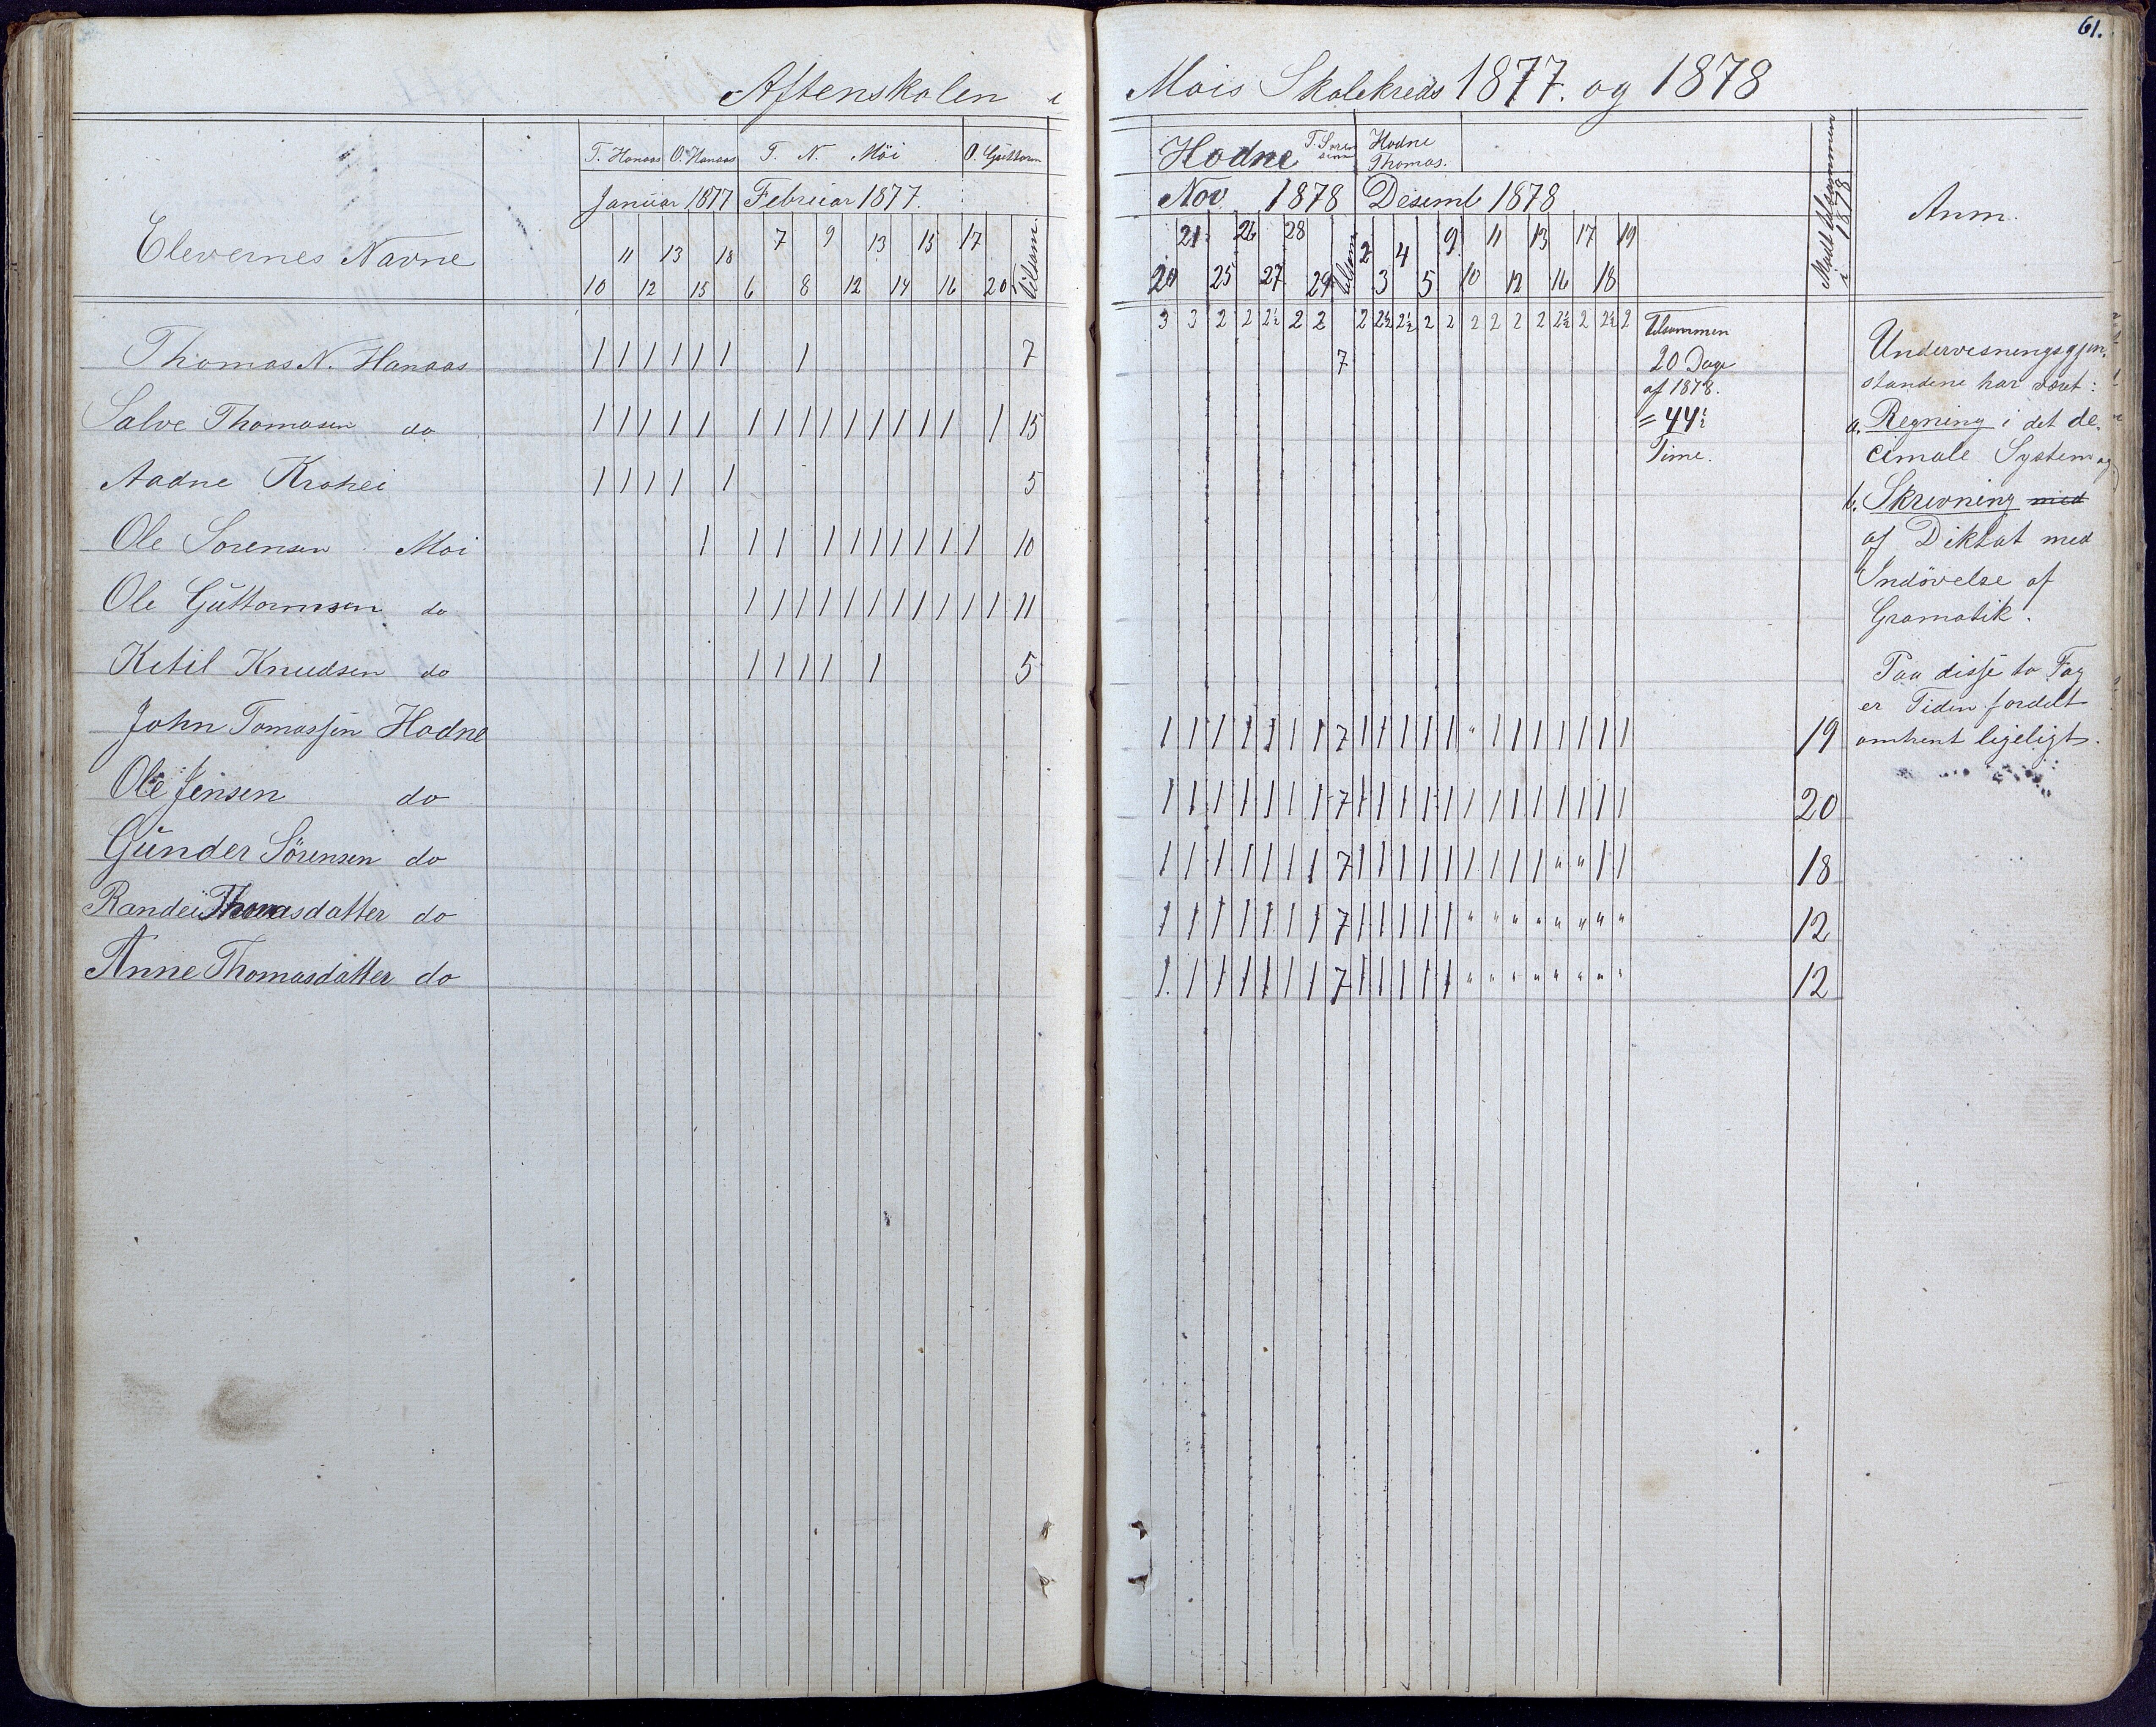 61.
Aftenskolen i Mois Skolekreds 1877. og 1878
Elevernes Navne
T. Hanaas O. Hanaas T. N. Möi O. Guttorm
Januar 1877 Februar 1877.
11 13 18 7 9 13 15 17
10 12 15 6 8 12 14 16 20 tilsam
Thomas N. Hanaas 1 1 1 1 1 1 1 7
Salve Thomasen do 1 1 1 1 1 1 1 1 1 1 1 1 1 1 1 15
Aadne Krohei 1 1 1 1 1 5
Ole Sorensen Moi 1 1 1 1 1 1 1 1 1 1 10
Ole Guttormsen do 1 1 1 1 1 1 1 1 1 1 1 11
Ketil Knudsen do 1 1 1 1 1 5
John Tomassen Hodne
Ole Jensen do
Gunder Sörensen do
Randei Thomasdatter do
Anne Thomasdatter do
Hodne T. Soren Hodne
Thomas.
Nov 1878 Desemb 1878
21 26 28 2 4 9 11 13 17 19
20 25 27 29 tilsam 3 5 10 12 16 18
Mødt tilsammen i 1878
Anm.
3 3 2 2 2½ 2 2 2 2½ 2½ 2 2 2 2 2 2 2½ 2 2½ 2
7
Tilsammen
20 Dage
af 1878.
= 44½
Time.
1 1 1 1 1 1 1 7 1 1 1 1 1 " 1 1 1 1 1 1 1 19
1 1 1 1 1 1 1 7 1 1 1 1 1 1 1 1 1 1 1 1 1 20
1 1 1 1 1 1 1 7 1 1 1 1 1 1 1 1 1 " " 1 1 18
1 1 1 1 1 1 1 7 1 1 1 1 1 " " " " " " " " 12
1 1 1 1 1 1 1 7 1 1 1 1 1 " " " " " " " " 12
Undervisningsgjen-
standene har været:
a. Regning i det de-
cimale System og
b. Skrivning med
af Diktat med
Indövelse af
Gramatik.
Paa disse to Fag
er Tiden fordelt
omtrent ligeligt.